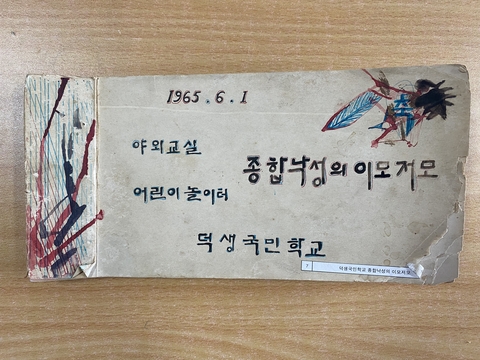 1965.6.1
축
야외교실
어린이 놀이터
종합낙성의 이모저모
덕생국민학교
덕생국민학교 종합낙성의 이모저모